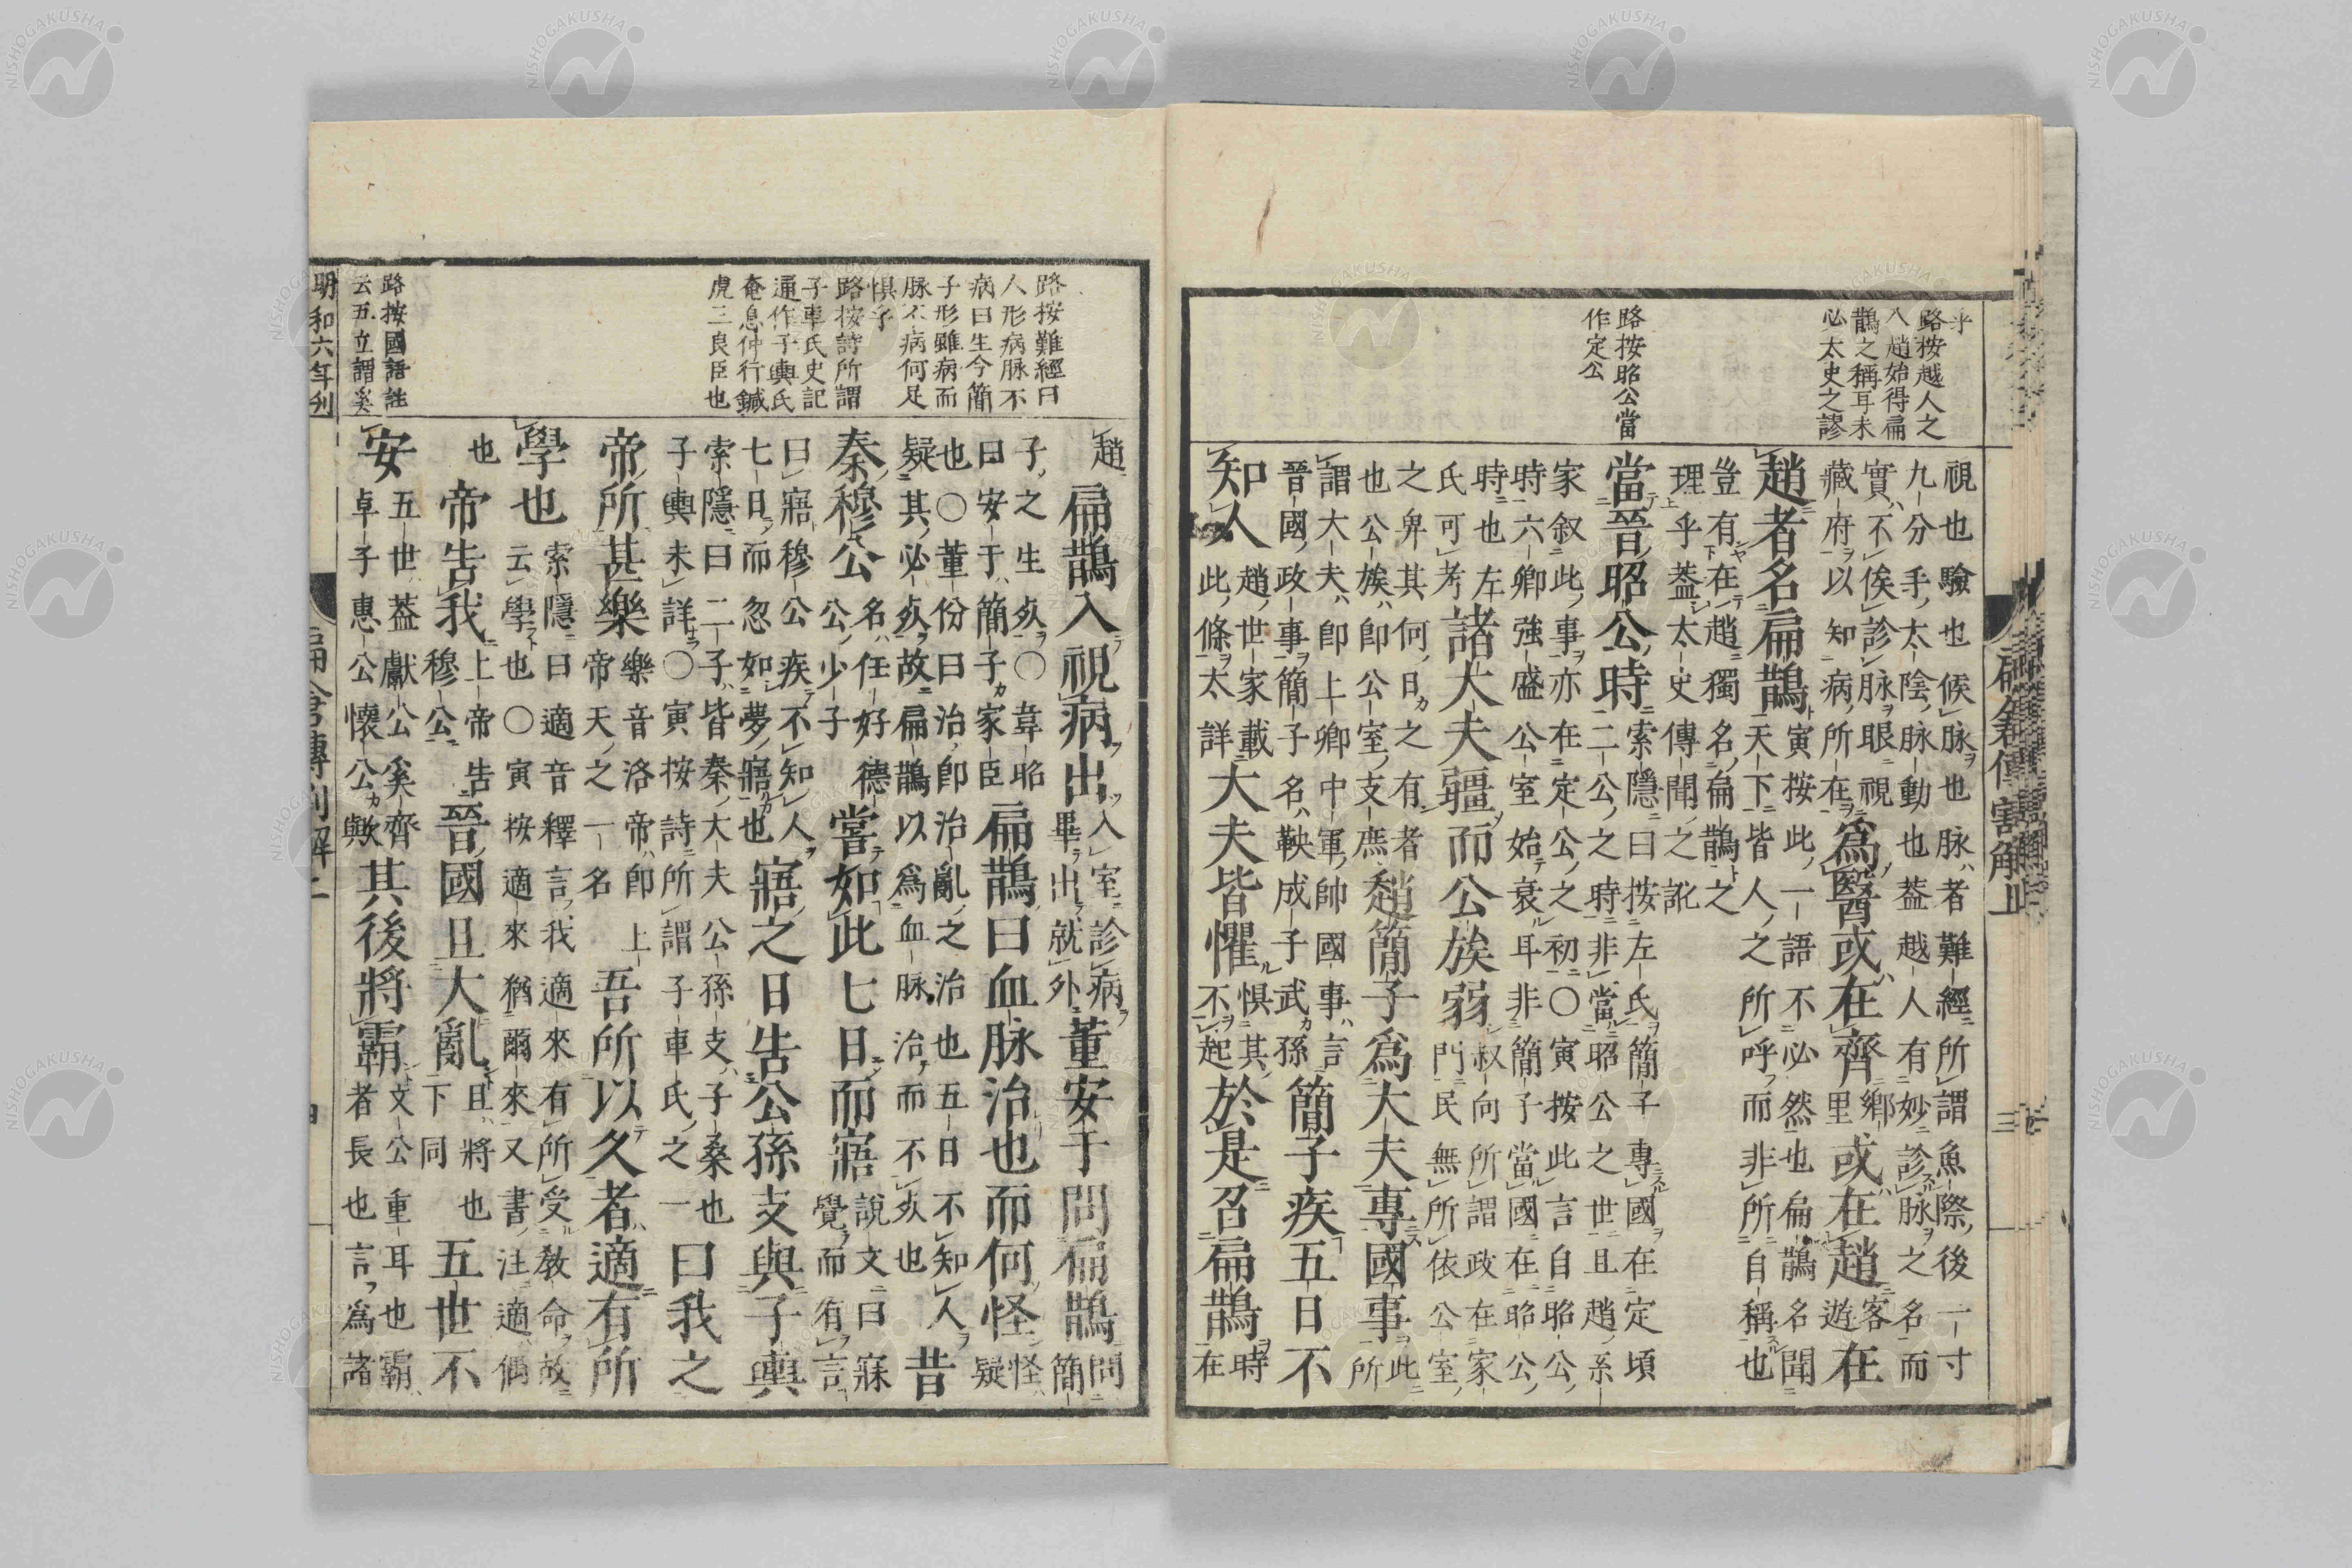 乎
路按越人之
入趙始得扁
鵲之稱耳未
必太史之謬
路按昭公當
作定公
視也驗也候脉也脉者難經所謂魚際後一寸
九分手太陰脉動也葢越人有妙診脉之名而
實不俟診脉眼視
藏府以知病所在
爲醫或在齊鄉里或在趙客遊在
趙者名扁鵲
寅按此一語不必然也扁鵲名聞
天下皆人之所呼而非所自稱也
豈有在趙獨名扁鵲之
理乎葢太史傳聞之訛
當晉昭公時
索隱曰按左氏簡子專國在定頃
二公之時非當昭公之世且趙系
家叙此事亦在定公之初〇寅按此言自昭公
時六卿強盛公室始衰耳非簡子當國在昭公
時也左
氏可考
諸大夫疆而公族弱
叔向所謂政在家
門民無所依公室
之卑其何日之有者
也公族即公室支庶
趙簡子爲大夫專國事此所
謂大夫即上卿中軍帥國事言
晉國政事簡子名鞅成子武孫
簡子疾五日不
知人
趙世家載
此條太詳
大夫皆懼惧其不起於是召扁鵲時在
扁倉傳割解上
三
路按難經曰
人形病脉不
病曰生今簡
子形雖病而
脉不病何足
惧乎
路按詩所謂
子車氏史記
通作子輿氏
奄息仲行鍼
虎三良臣也
路按國語註
云五立謂奚
趙扁鵲入視病出
入室診病
畢出就外
董安于問扁鵲
問
簡
子之生死〇韋昭
曰安于簡子家臣
扁鵲曰血脉治也而何怪
怪
疑
也〇董份曰治即治亂之治也五日不知人
疑其必死故扁鵲以爲血脉治而不死也
昔
秦穆公
名任好德
公少子
嘗如此七日而寤
說文曰寐
覺而有言
曰寤穆公疾不知人
七日而忽如夢寤也
寤之日告公孫支與子輿
索隱曰二子皆秦大夫公孫支子桑也
子輿未詳〇寅按詩所謂子車氏之一
曰我之
帝所甚樂
樂音洛帝即上
帝天之一名
吾所以久者適有所
學也
索隱曰適音釋言我適來有所受敎命故
云學也〇寅按適來猶爾來又書注適偶
也帝告我
上帝告
穆公
晉國且大亂
且將也
下同
五世不
安
五世葢獻公奚齊
卓子惠公懷公歟
其後將霸
文公重耳也霸
者長也言爲諸
明和六年刋
扁倉傳割解上
四